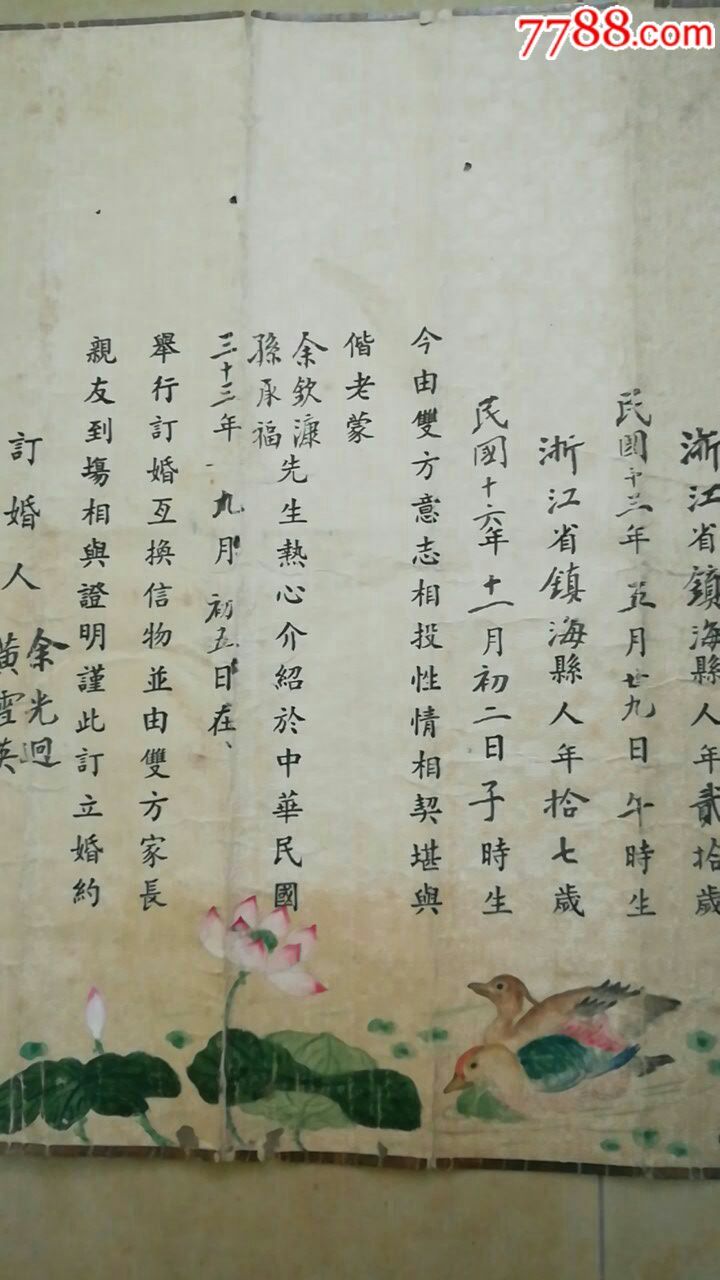 7788.com
浙江省鎮海縣人年貳拾歲
民國十三年五月廿九日午時生
浙江省鎮海縣人年拾七歲
民國十六年十一月初二日子時生
今由雙方意志相投性情相契堪與
偕老蒙
余欽漮
孫承福
先生熱心介紹於中華民國
三十三年九月初五日在
舉行訂婚互換信物並由雙方家長
親友到塲相與證明謹此訂立婚約
訂婚人
余光迥
黃雪英